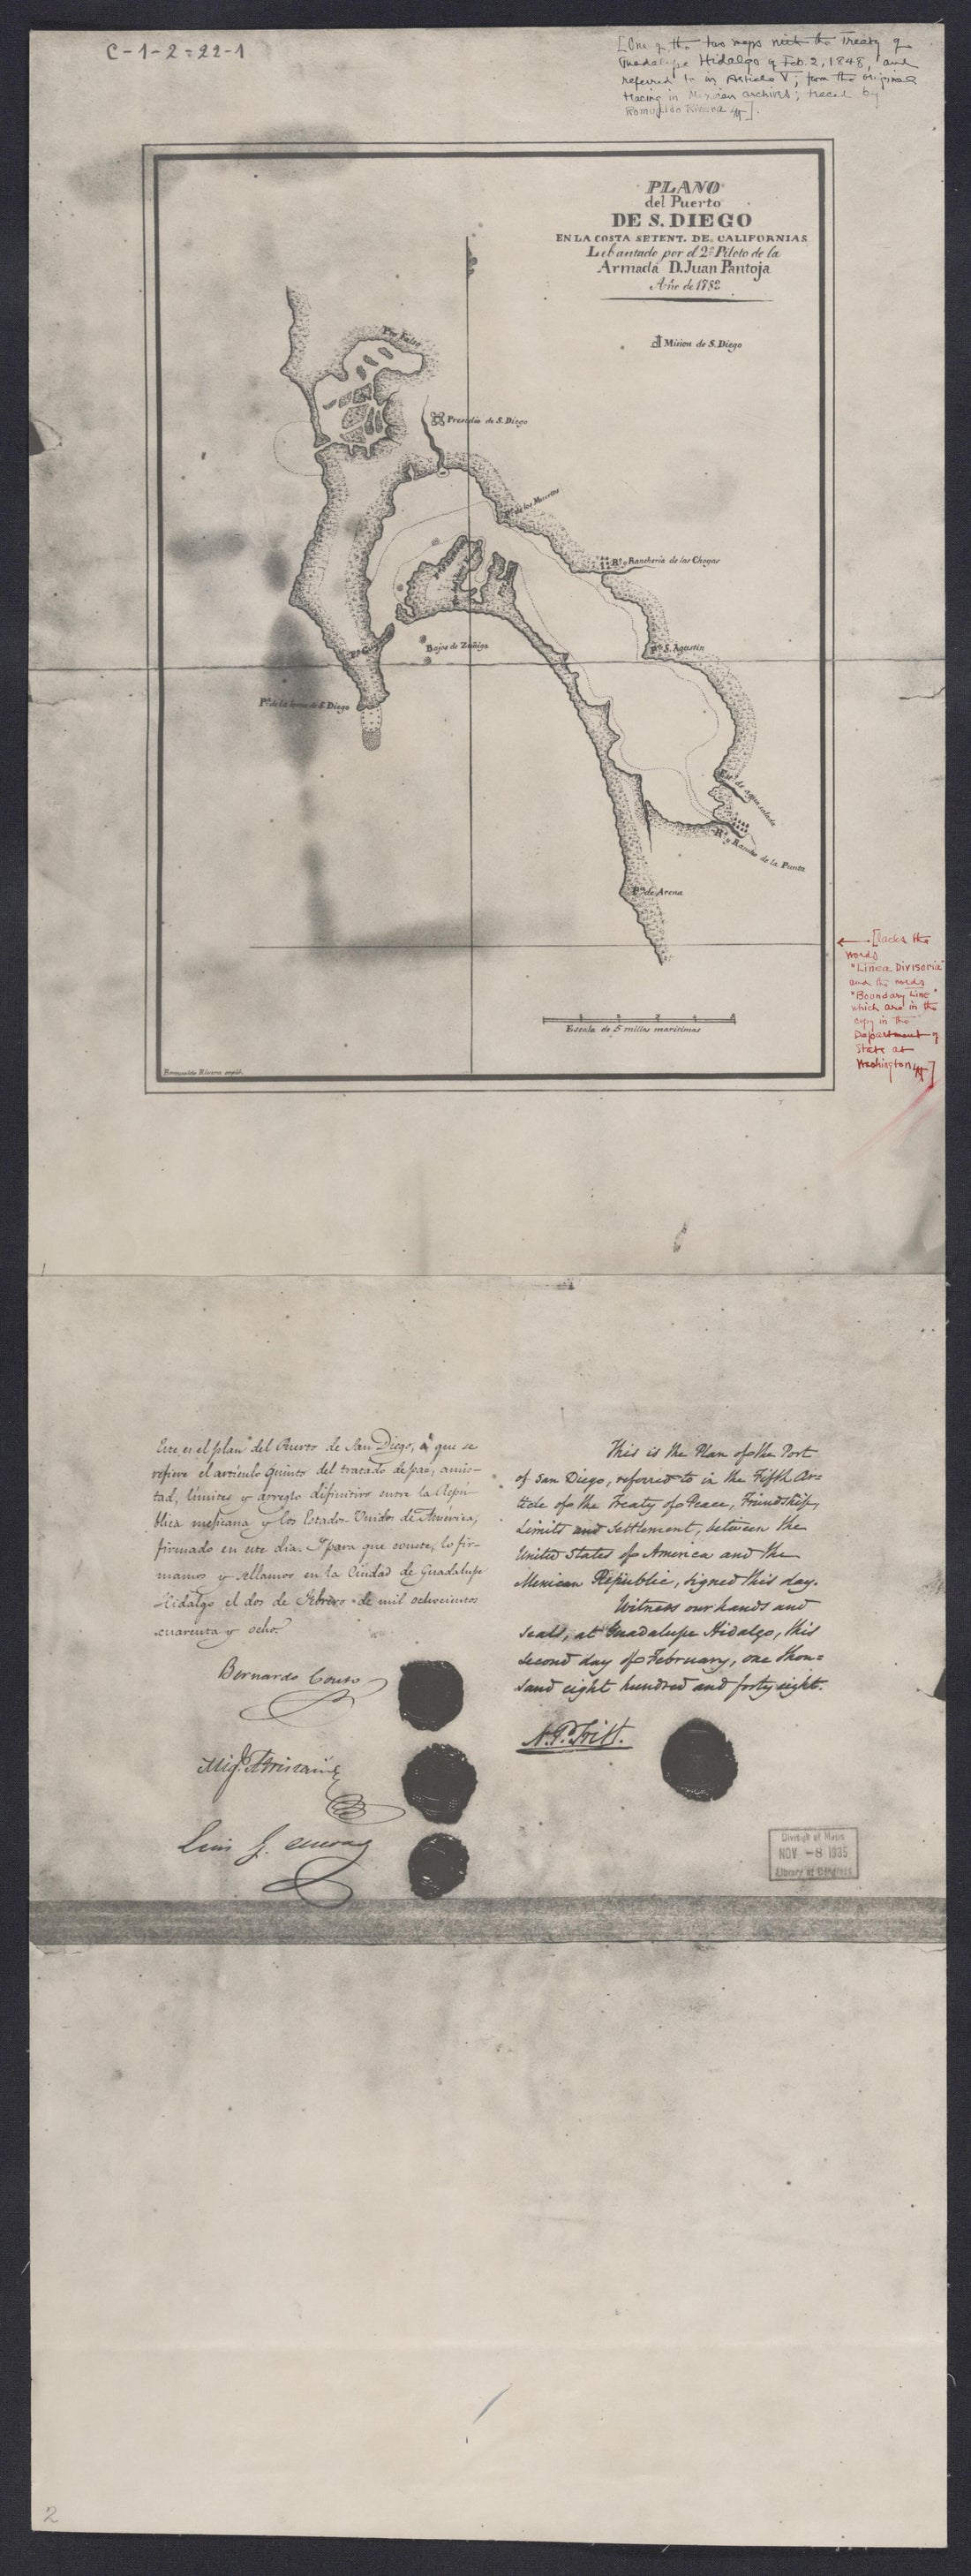 C-1-2=22-1
[One of the two maps with the Treaty of
Guadalupe Hidalgo of Feb. 2, 1848, and
referred to in Article V; from the original
tracing in Mexican archives; traced by
Romualdo Rivera]
PLANO
del Puerto
DE S. DIEGO
EN LA COSTA SETENT. DE CALIFORNIAS
Lebantado por el 2º Piloto de la
Armada D. Juan Pantoja
Año de 1782
Mision de S. Diego
Pto Falso
Presidio de S. Diego
Pta de los Muertos
Rº y Rancheria de las Choyas
Bajos de Zuñiga
Pta S. Agustin
Pta de la loma de S. Diego
de agua salada
Rº y Rancho de la Punta
Pta de Arena
←[lacks the
words
"Linea Divisoria"
and the words
"Boundary Line"
which are in the
copy in the
Department of
State at
Washington]
Escala de 5 millas maritimas
Romualdo Rivera
1
Este es el plan del Puerto de San Diego, á que se
refiere el artículo quinto del tratado de paz, amis-
tad, límites y arreglo definitivo entre la Repú-
blica mejicana y los Estados-Unidos de América,
firmado en este dia. Y para que conste, lo fir-
mamos y sellamos en la Ciudad de Guadalupe
Hidalgo el dos de Febrero de mil ochocientos
cuarenta y ocho.
Bernardo Couto
Migl. Atristain
Luis G. Cuevas
This is the Plan of the Port
of San Diego, referred to in the Fifth Ar=
ticle of the Treaty of Peace, Friendship,
Limits and Settlement, between the
United States of America and the
Mexican Republic, signed this day.
Witness our hands and
seals, at Guadalupe Hidalgo, this
second day of February, one thou=
sand eight hundred and forty eight.
N. P. Trist.
Division of Maps
NOV -8 1935
Library of Congress
2